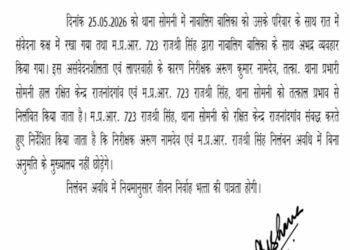 दिनांक 25.05.2026 को थाना सोमनी में नाबालिग बालिका को उसके परिवार के साथ रात में
संवेदना कक्ष में रखा गया तथा म.प्र.आर. 723 राजश्री सिंह द्वारा नाबालिग बालिका के साथ अभद्र व्यवहार
किया गया। इस असंवेदनशीलता एवं लापरवाही के कारण निरीक्षक अरुण कुमार नामदेव, तत्का. थाना प्रभारी
सोमनी हाल रक्षित केन्द्र राजनांदगांव एवं म.प्र.आर. 723 राजश्री सिंह, थाना सोमनी को तत्काल प्रभाव से
निलंबित किया जाता है। म.प्र.आर. 723 राजश्री सिंह, थाना सोमनी को रक्षित केन्द्र राजनांदगांव संबद्ध करते
हुए निर्देशित किया जाता है कि निरीक्षक अरुण नामदेव एवं म.प्र.आर. राजश्री सिंह निलंबन अवधि में बिना
अनुमति के मुख्यालय नहीं छोड़ेगे।
निलंबन अवधि में नियमानुसार जीवन निर्वाह भत्ता की पात्रता होगी।